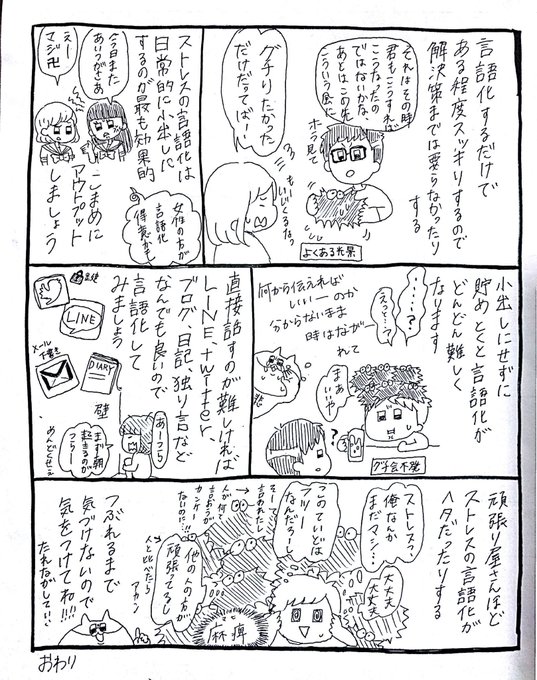 言語化するだけで
ある程度スッキリするので
解決策までは要らなかったり
する
それはその時
君がこうすれば
こうなったの
ではないかな
あとはこの先
こういう風に
ホラ見て
グチりたかった
だけだってばー!
もーいじくるなっ
よくある光景
ストレスの言語化は
日常的に小出しに
するのが最も効果的
今日また
あいつがさぁ
えー
マジ卍
こまめに
アウトプット
しましょう
女性の方が
言語化
得意かも
小出しにせずに
貯めとくと言語化が
どんどん難しく
なります
・・・・・?
えっ・・・と
何から伝えれば
いいーのか
分からないまま
時はながー
れて
まぁ
いいや
?
グチ会不発
直接話すのが難しければ
LINE、twitter
ブログ、日記、独り言など
なんでも良いので
言語化して
みましょう
LINE
メール
手書き
DIARY
壁
あーつら
まず朝
起きるのが
つらー
めんどくせえ
頑張り屋さんほど
ストレスの言語化が
ヘタだったりする
大丈夫
大丈夫
ストレスっ、
俺なんか
まだマシ・・・
このていどは
フツー
なんだろーし
そーでう
言われたし
人が何て
言おうが
カンケー
ないのに!!
他の人の方が
頑張ってるし
人と比べたら
アカン
麻痺
つぶれるまで
気づけないので
気をつけてね!!!
たれながしてい・・
おわり